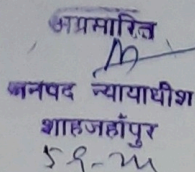 अग्रसारित
जनपद न्यायाधीश
शाहजहाँपुर